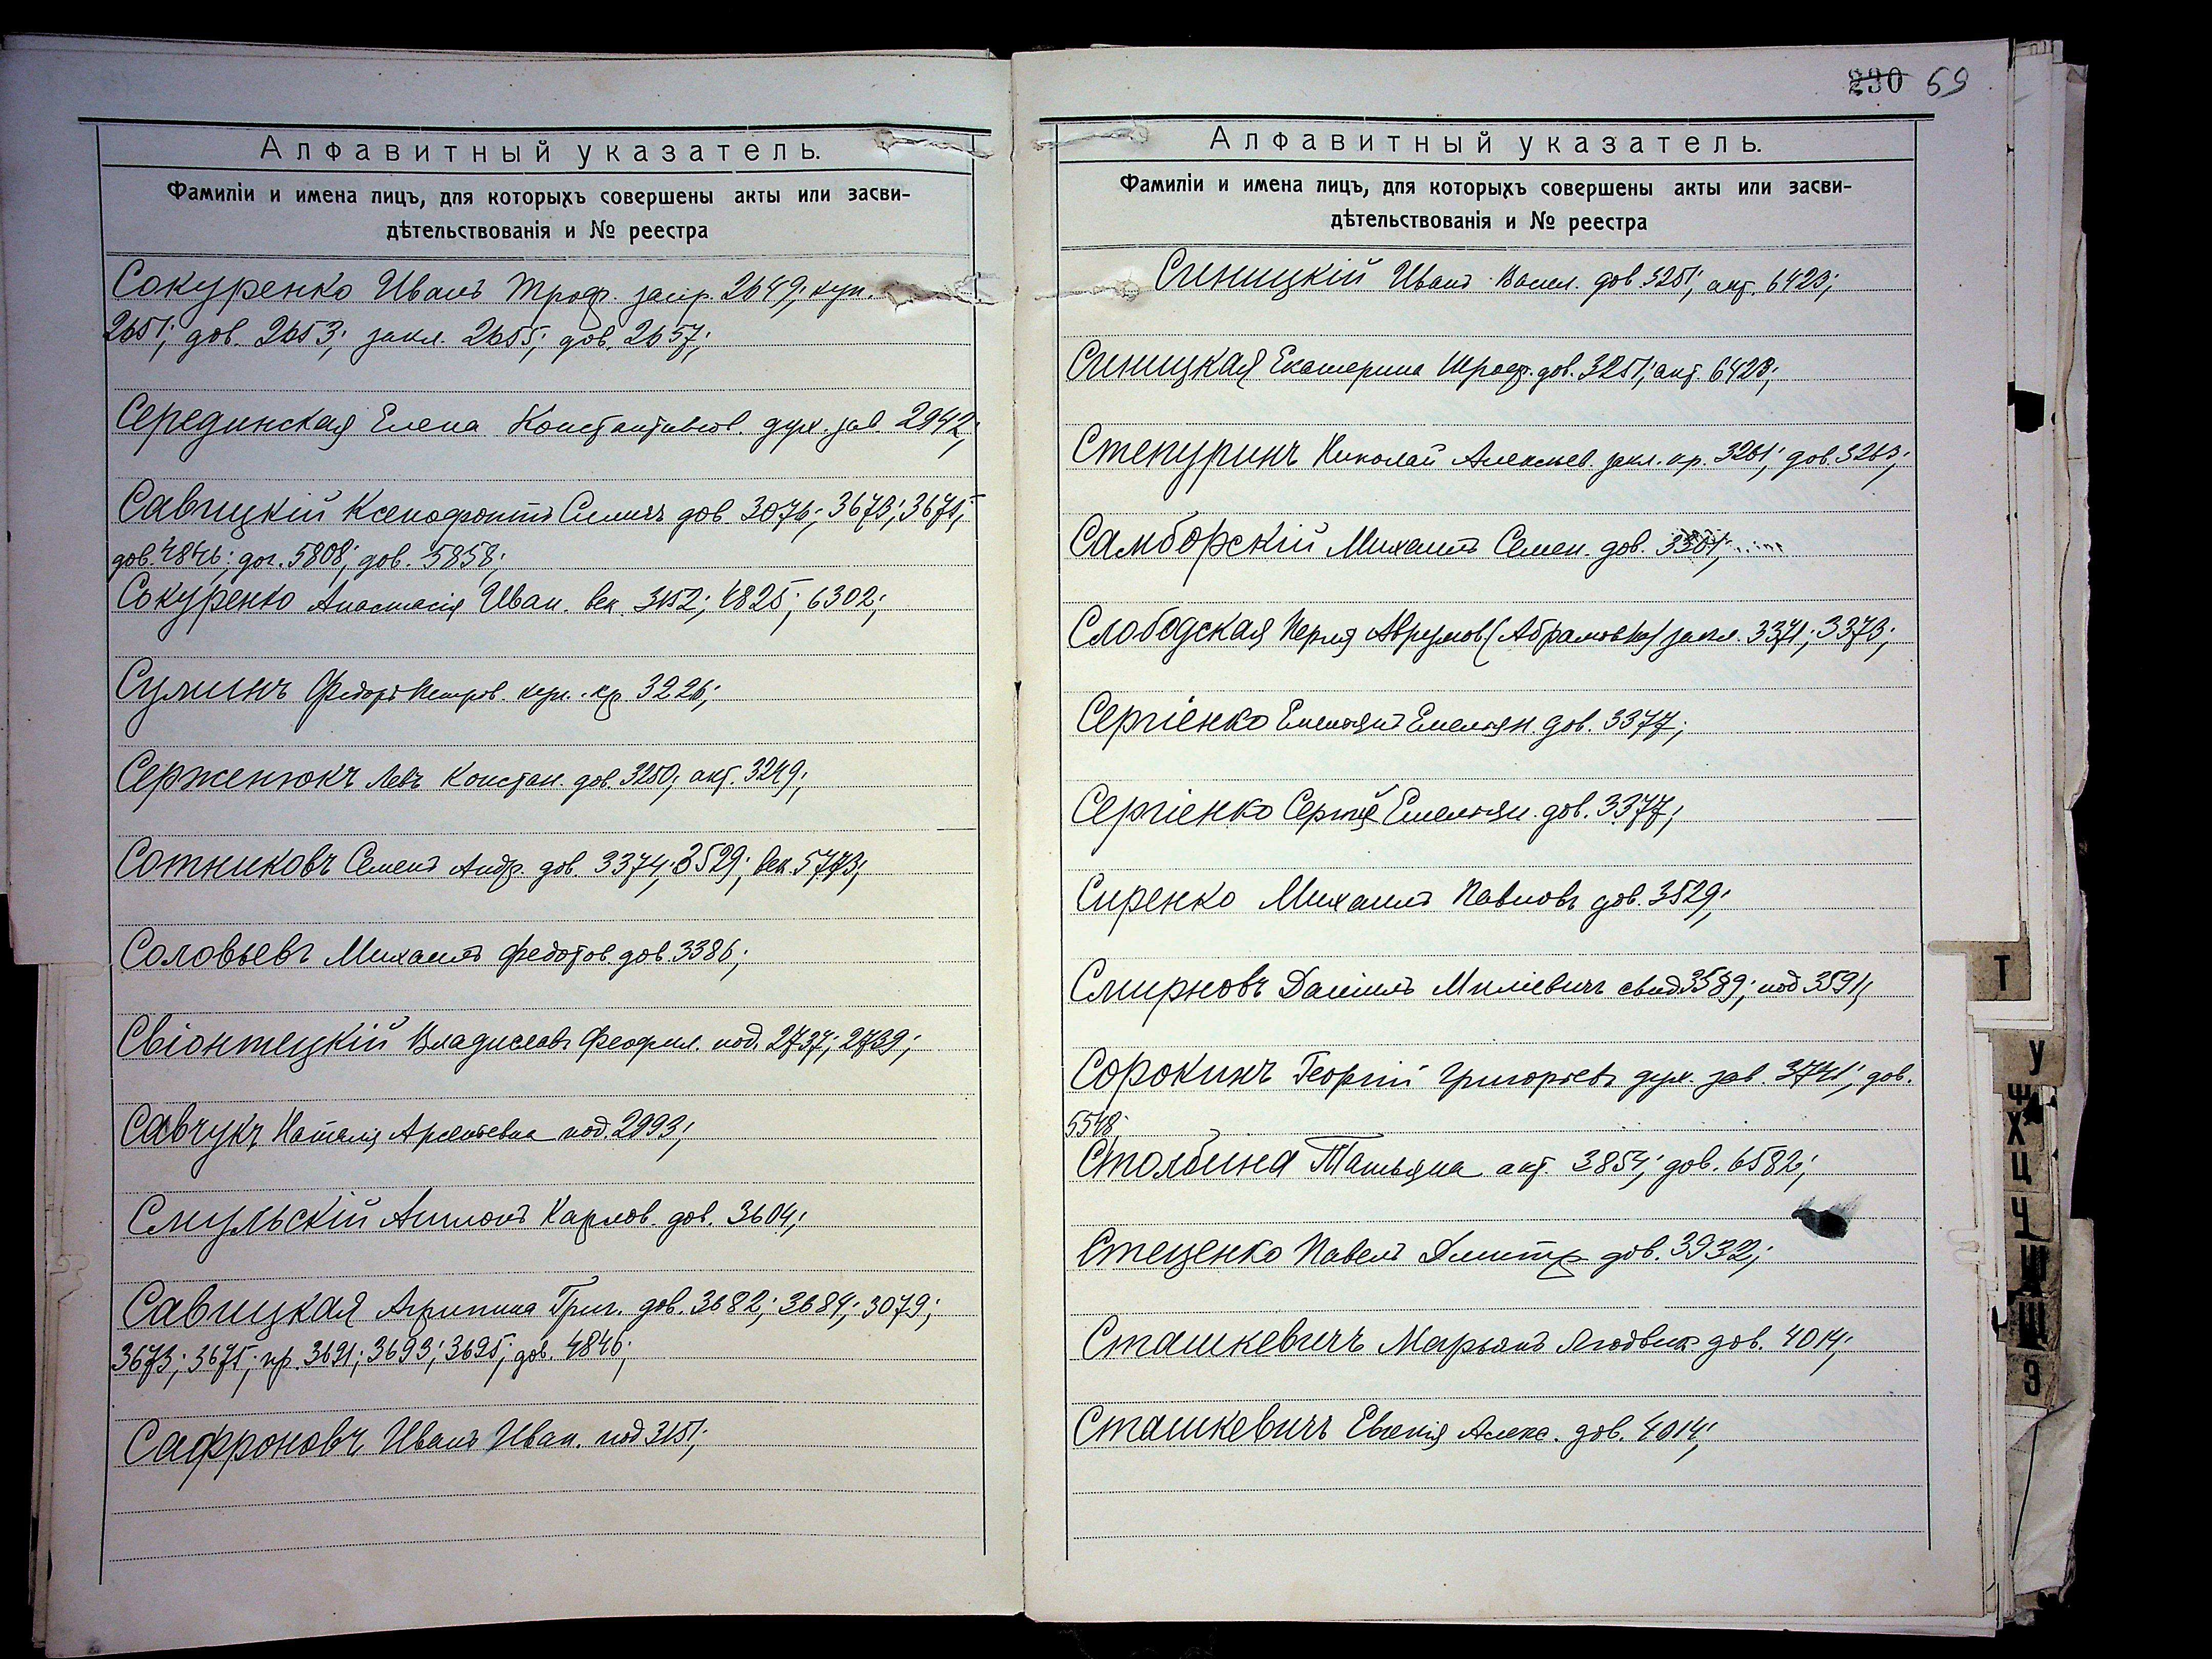 Алфавитный указатель.
Фамиліи и имена лицъ, для которыхъ совершены акты или засви-
дѣтельствованія и № реестра
Сокуренко Иванъ Троф. запр. 2649; куп.
2651; дов. 2653; закл. 2655; дов. 2657;
Серединская Елена Константинов. дух. зав. 2942;
Савицкій Ксенофонтъ Силичъ дов. 3076; 3673; 3675;
дов. 4846; дог. 5808; дов. 5858;
Сокуренко Анастасія Иван. век. 3152; 4825; 6302;
Сулинъ Федоръ Петров. куп. кр. 3226;
Серженюкъ Левъ Констан. дов. 3250; акт. 3249;
Сотниковъ Семенъ Андр. дов. 3374; 3529; век. 5773;
Соловьевъ Михаилъ Федотов. дов. 3386;
Свіонтецкій Владиславъ Феофил. под. 2737; 2739;
Савчукъ Наталія Арсентьевна под. 2993;
Смульскій Антонъ Карлов. дов. 3604;
Савицкая Агрипина Григ. дов. 3682; 3684; 3079;
3673; 3675; пр. 3691; 3693; 3695; дов. 4846;
Сафроновъ Иванъ Иван. под 3151;
230 69
Алфавитный указатель.
Фамиліи и имена лицъ, для которыхъ совершены акты или засви-
дѣтельствованія и № реестра
Синицкій Иванъ Васил. дов. 3251; акт. 6423;
Синицкая Екатерина Троф. дов. 3251; акт. 6423;
Степуринъ Николай Алексѣев. закл. кр. 3261; дов. 3263;
Самборскій Михаилъ Семен. дов. 3301;
Слободская Перля Аврумов (Абрамовна) закл. 3371; 3373;
Сергіенко Емельянъ Емельян. дов. 3377;
Сергіенко Сергѣй Емельян. дов. 3377;
Сиренко Михаилъ Павловъ дов. 3529;
Смирновъ Даніилъ Миліевичъ свид. 3589; под 3591;
Сорокинъ Георгій Григорьевъ дух. зав. 3741; дов.
5548;
Столбина Татьяна акт. 3854; дов. 6582;
Стеценко Павелъ Дмитр. дов. 3932;
Сташкевичъ Марьянъ Людвик. дов. 4014;
Сташкевичъ Евгенія Алекс. дов. 4014;
Т
У
Ф
Х
Ц
Ч
Ш
Щ
Э